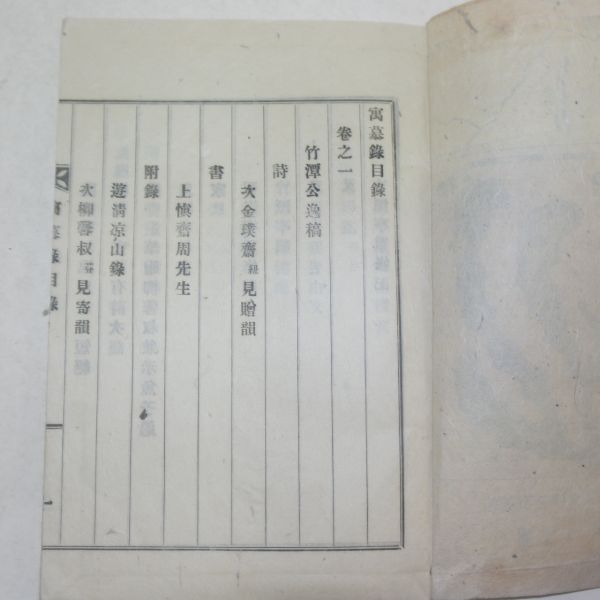 寓墓錄目錄
卷之一
竹潭公逸稿
詩
次金璞齋紐見贈韻
書
上愼齋周先生
附錄
遊淸凉山錄
次柳馨叔見寄韻
寓墓錄目錄
一